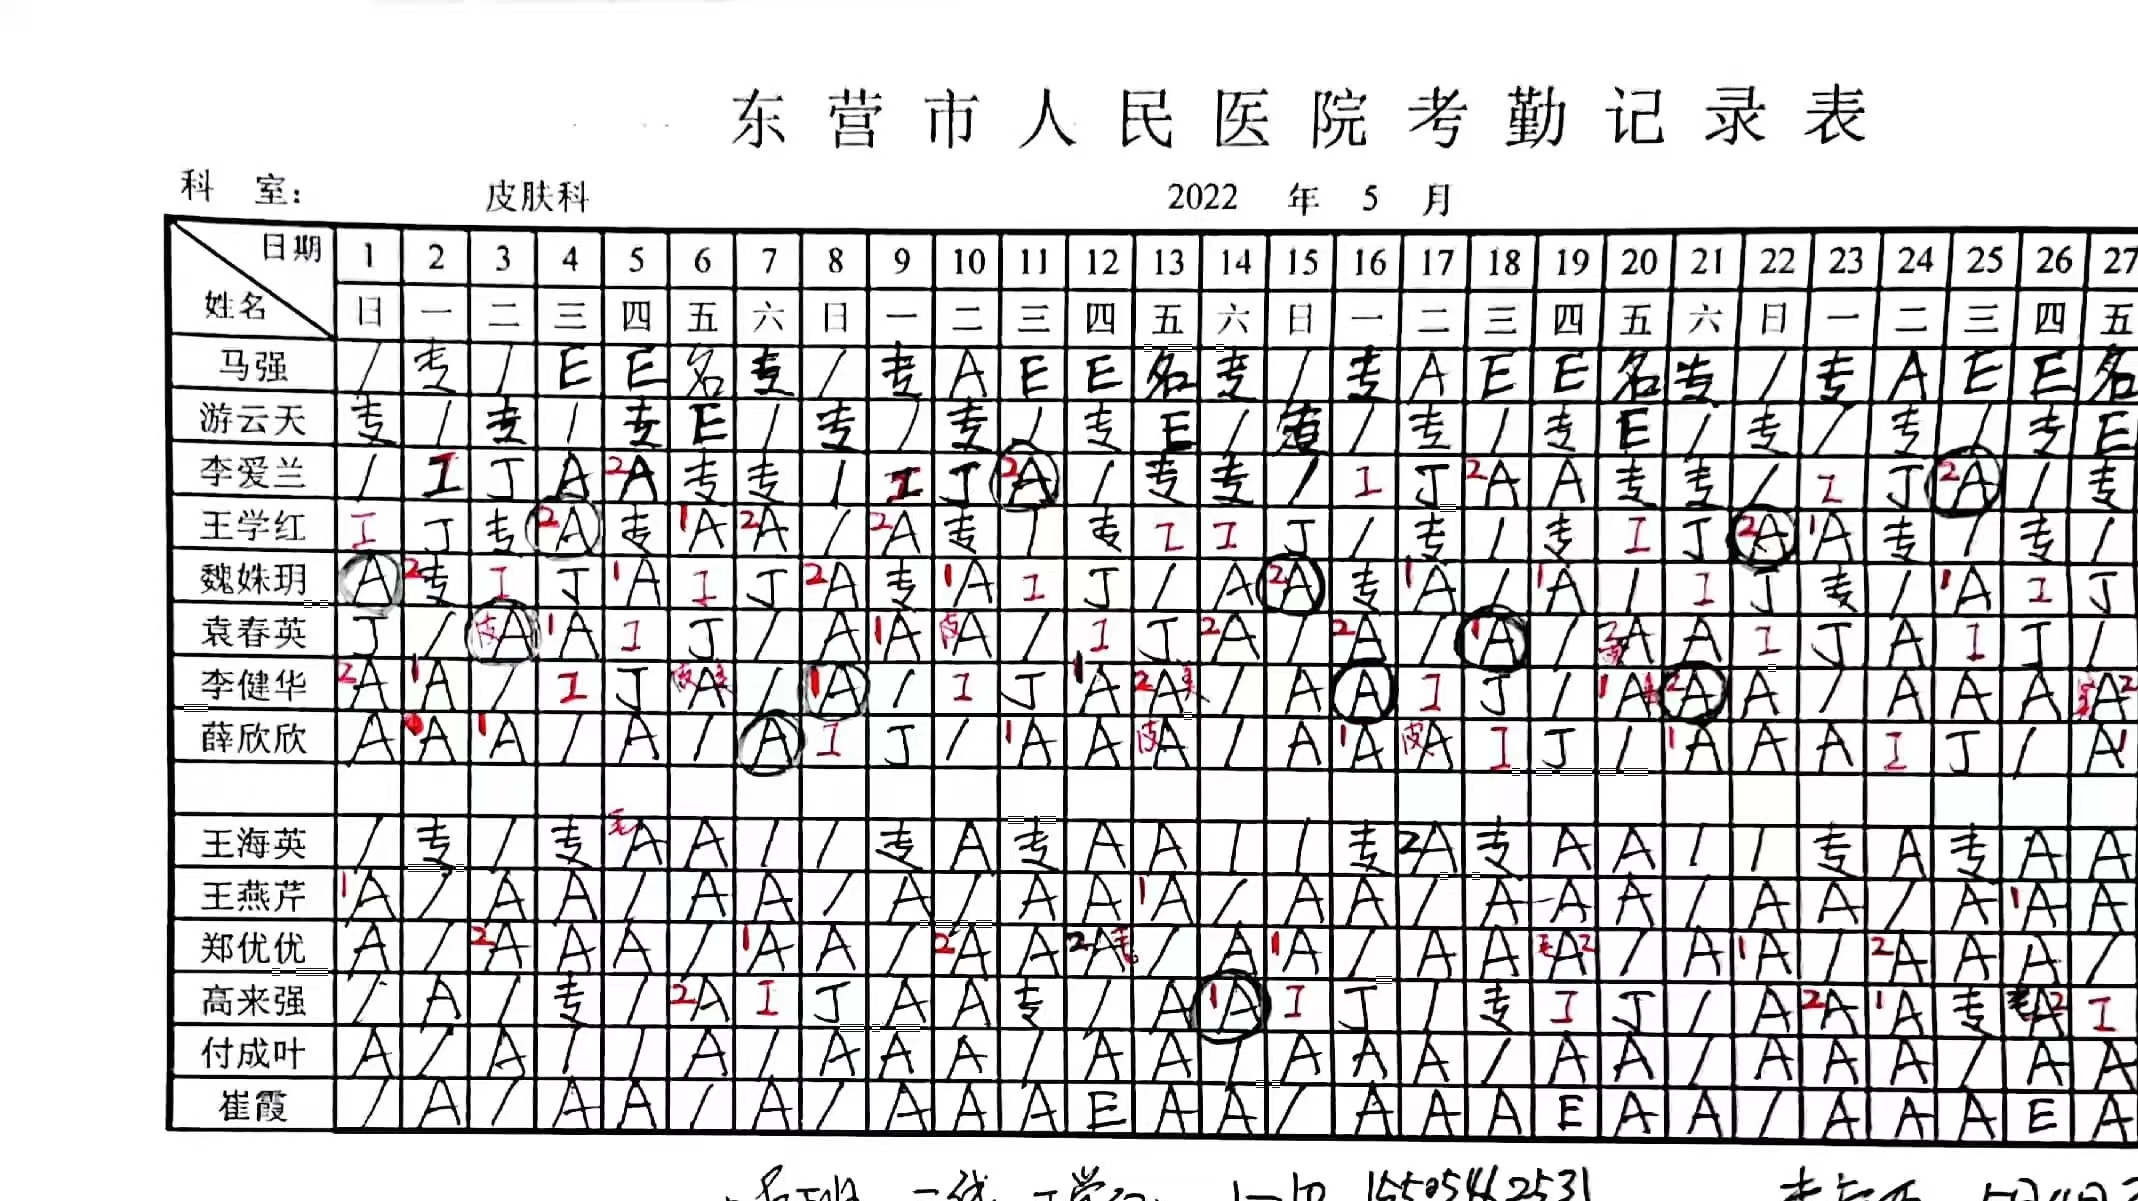 东营市人民医院考勤记录表
科 室： 皮肤科 2022 年 5 月
日期 1 2 3 4 5 6 7 8 9 10 11 12 13 14 15 16 17 18 19 20 21 22 23 24 25 26 27
姓名 日 一 二 三 四 五 六 日 一 二 三 四 五 六 日 一 二 三 四 五 六 日 一 二 三 四 五
马强 / 专 / E E 名 专 / 专 A E E 名 专 / 专 A E E 名 专 / 专 A E E 名
游云天 专 / 专 / 专 E / 专 / 专 / 专 E / / 专 / 专 E / 专 / 专 / 专 E
李爱兰 / I J A 2A 专 专 / I J 2A / 专 专 / I J 2A A 专 专 / I J 2A / 专
王学红 I J 专 2A 专 1A 2A / 2A 专 / 专 I I J / 专 / 专 I J 2A 1A 专 / 专 /
魏姝玥 A 2专 I J 1A I J 2A 专 1A I J / A 2A 专 1A / 1A / I J 专 / 1A I J
袁春英 J / 皮A 1A I J / A 1A 皮A / I J 2A / 2A / 1A / A A I J A I J /
李健华 2A 1A / I J A / 1A / I J 1A 2A / A A I J / 1A 2A A / A A A A2
薛欣欣 A A 1A / A / A I J / 1A A 皮A / A 1A 皮A I J / 1A A A I J / A1
王海英 / 专 / 专 毛A A / / 专 A 专 A A / / 专 2A 专 A A / / 专 A 专 A A
王燕芹 1A / A A / A A / A / A A 1A / A A / A A A / A A / A 1A A
郑优优 A / 2A A A / 1A A / 2A A 2A毛 / A 1A / A A 毛A2 / A 1A / 2A A A /
高来强 / A / 专 / 2A I J A A 专 / A 1A I J / 专 I J / A 2A 1A 专 毛A2 I
付成叶 A / A / / A / A A A / A A / A A A / A A / A A A / A A
崔霞 / A / A A / A / A A A E A A / A A A E A A / A A A E A